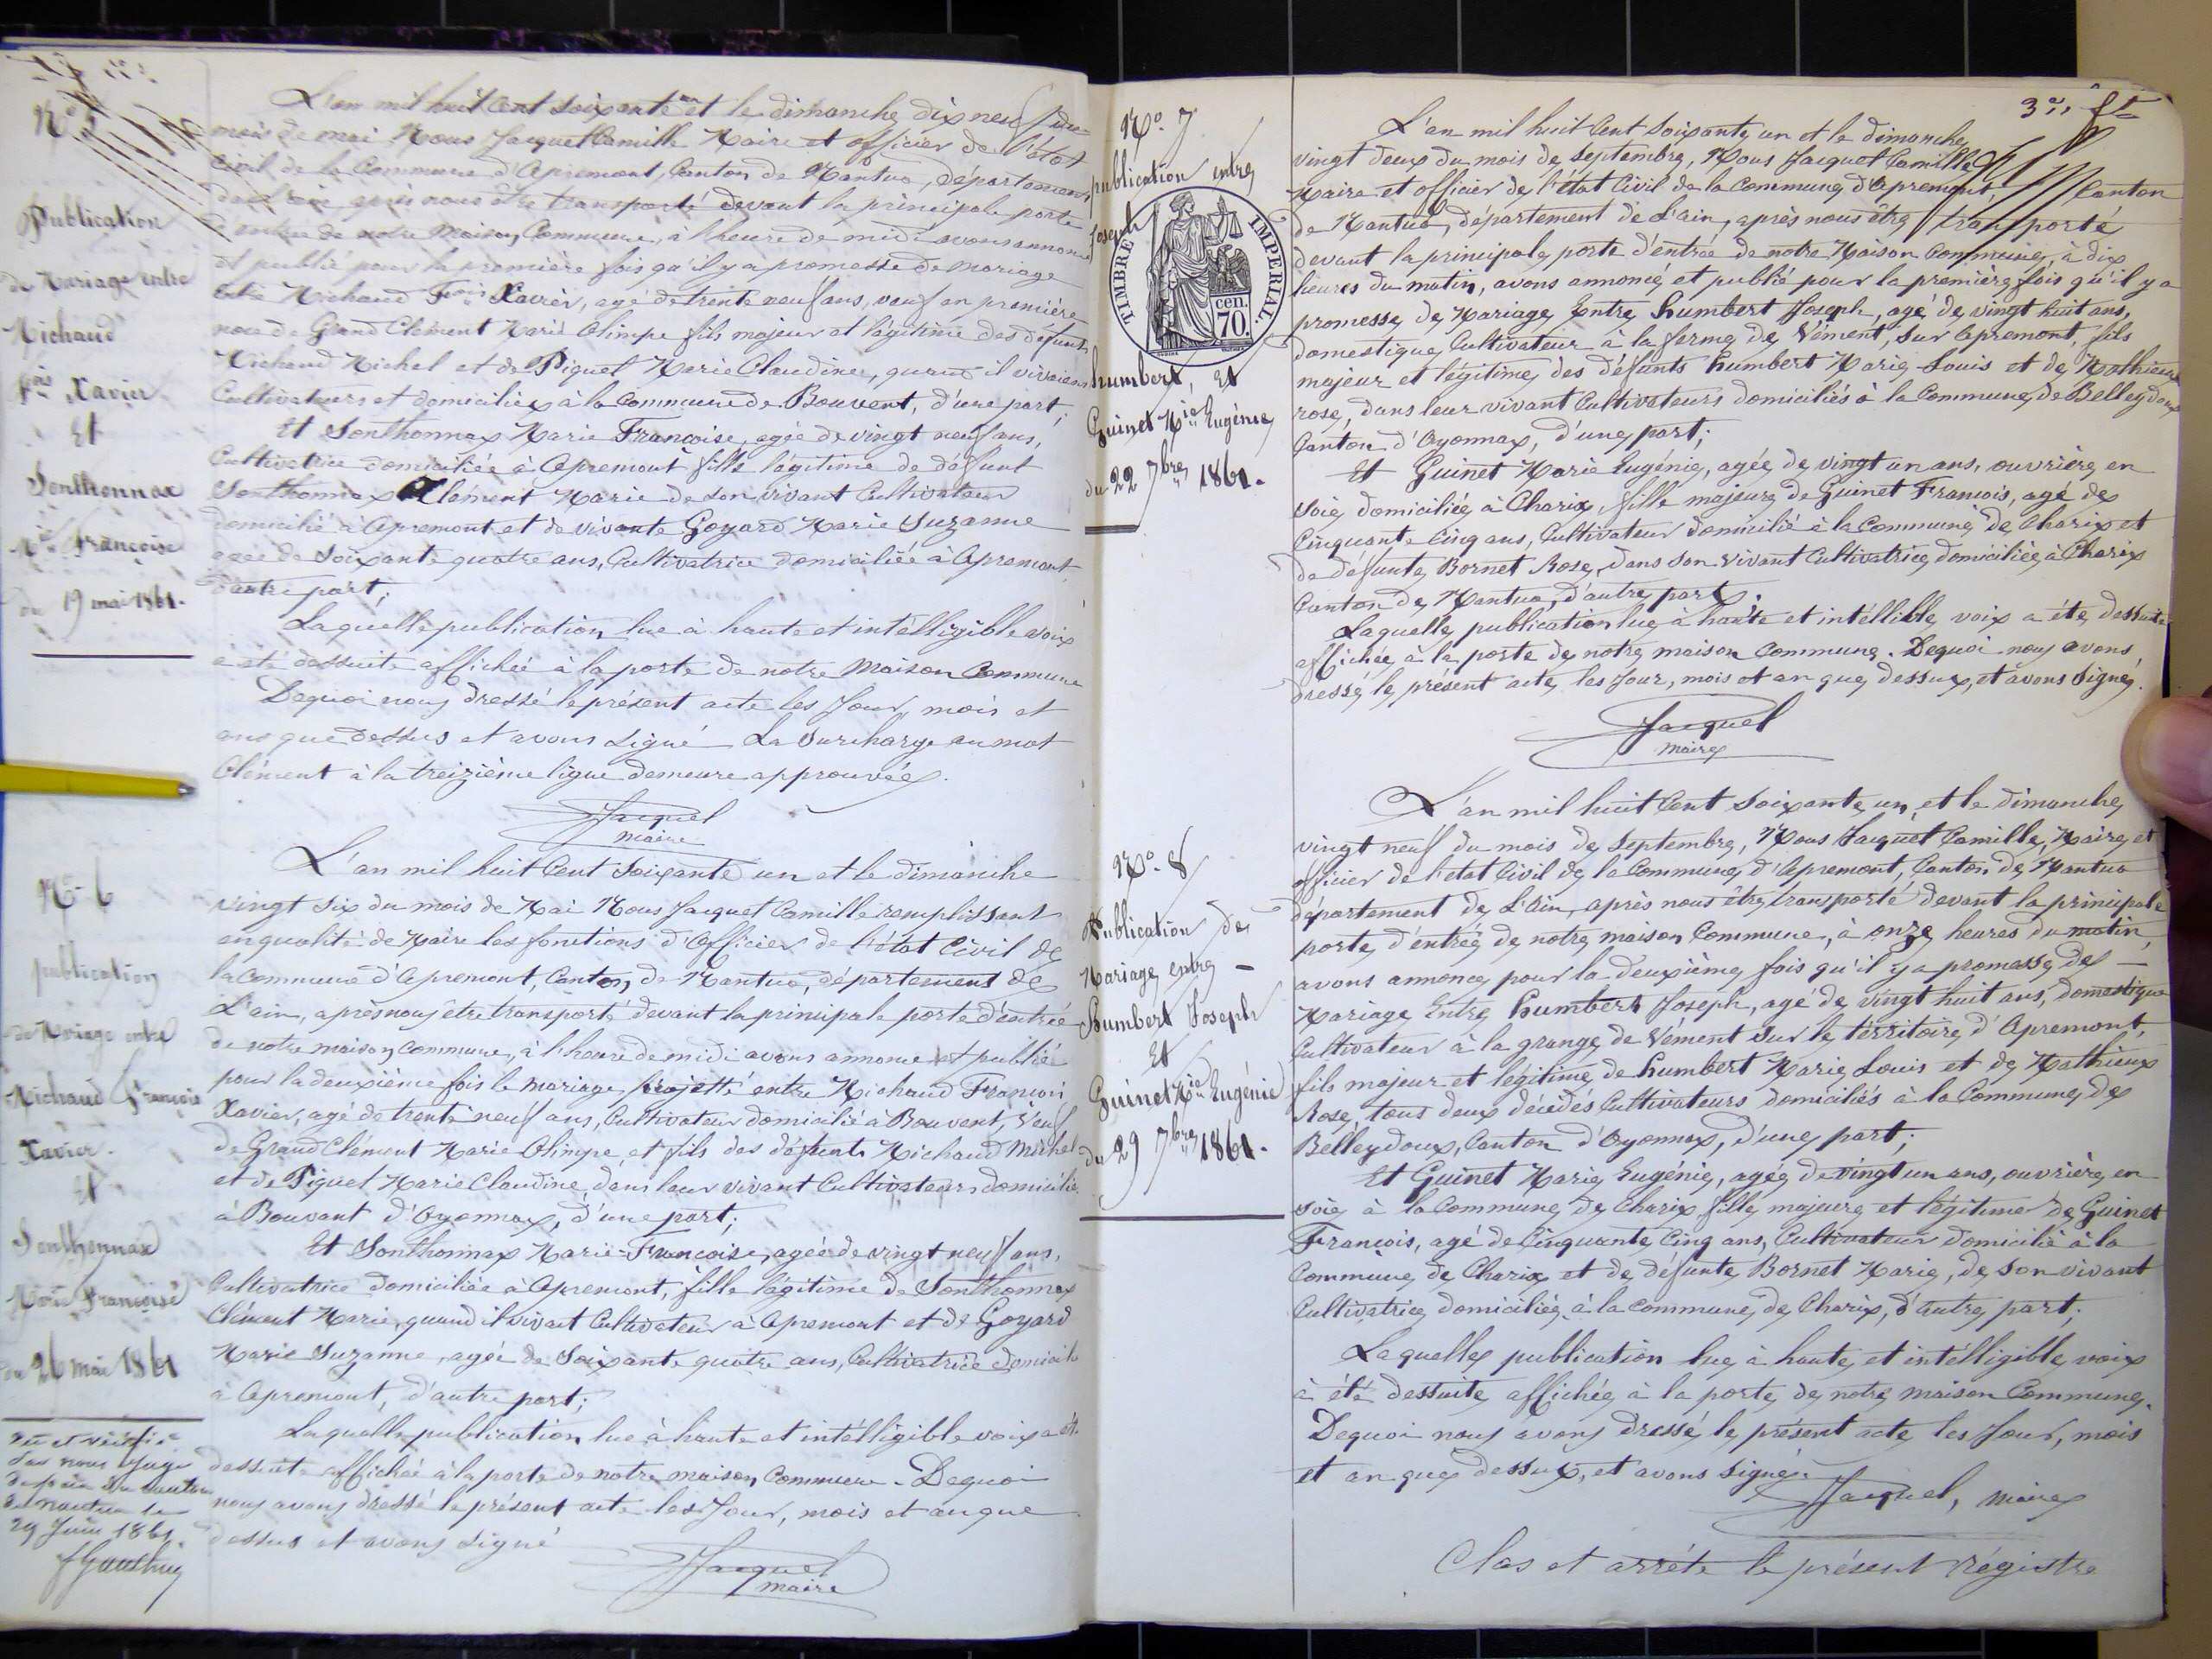 No 5
Publication
de Mariage entre
Michaud
fois Xavier
Et
Sonthonnax
Mie Françoise
du 19 mai 1861.
L'an mil huit Cent soixante un et le dimanche dix neuf du
mois de mai Nous Jacquet Camille Maire et officier de l'état
Civil de la Commune d'Apremont, Canton de Nantua, département
de l'ain après nous être transporté devant la principale porte
d'entrée de notre Maison Commune, à l'heure de midi avons annoncé
et publié pour la première fois qu'il y a promesse de Mariage
entre Michaud Fois Xavier, agé de trente neuf ans, veuf en première
noce de Grand Clément Marie Olimpe fils majeur et légitime des défunts
Michaud Michel et de Piquet Marie Claudine, quand il vivaient
Cultivateurs et domiciliés à la Commune de Bouvent, d'une part;
Et Sonthonnax Marie Françoise, agée de vingt neuf ans,
Cultivatrice domiciliée à Apremont fille légitime de défunt
Sonthonnax Clément Marie de son vivant Cultivateur
domicilié à Apremont et de vivante Goyard Marie Suzanne
agée de Soixante quatre ans, Cultivatrice domiciliée à Apremont,
d'autre part;
Laquelle publication lue à haute et intélligible voix
a été dessuite affichée à la porte de notre Maison Commune
Dequoi nous dressé le présent acte les Jour, mois et
ans que dessus et avons signé La Surcharge au mot
Clément à la treizième ligne demeure approuvée.
Jacquet
maire
No 6
publication
de Mariage entre
Michaud François
Xavier.
Et
Sonthonnax
Marie Françoise
du 26 mai 1861
L'an mil huit Cent Soixante un et le dimanche
vingt six du mois de Mai Nous Jacquet Camille remplissant
en qualité de Maire les fonctions d'officier de l'état Civil de
la Commune d'Apremont, Canton de Nantua, département de
L'ain, après nous être transporté devant la principale porte d'entrée
de notre maison Commune, à l'heure de midi avons annoncé et publié
pour la deuxième fois le mariage projetté entre Michaud François
Xavier, agé de trente neuf ans, Cultivateur domicilié à Bouvent, Veuf
de Grand Clément Marie Olimpe, et fils des défunts Michaud Michel
et de Piquet Marie Claudine, dans leur vivant Cultivateurs domiciliés
à Bouvant d'Oyonnax, d'une part;
Et Sonthonnax Marie-Françoise, agée de vingt neuf ans,
Cultivatrice domiciliée à Apremont, fille légitime de Sonthonnax
Clément Marie, quand il vivait Cultivateur à Apremont et de Goyard
Marie Suzanne, agée de Soixante quatre ans, Cultivatrice domicile
à Apremont, d'autre part;
Laquelle publication lue à haute et intélligible voix a été
dessuite affichée à la porte de notre maison Commune. Dequoi
nous avons dressé le présent acte les Jour, mois et an que
dessus et avons signé
Jacquet
maire
Vu et vérifié
par nous Juge
de paix du canton
de Nantua le
29 Juin 1861.
No. 7
publication entre
Joseph
TIMBRE IMPERIAL.
cen.
70.
humbert, Et
Guinet Mie Eugénie
du 22 7bre 1861.
3e, ft
L'an mil huit Cent soixante un et le dimanche
vingt deux du mois de Septembre, Nous Jacquet Camille
Maire et officier de l'état Civil de la Commune d'Apremont, Canton
de Nantua, département de L'ain, après nous être transporté
devant la principale porte d'entrée de notre Maison Commune, à dix
heures du matin, avons annoncé et publié pour la première fois qu'il y a
promesse de Mariage Entre humbert Joseph, agé de vingt huit ans,
domestique Cultivateur à la ferme de Vément, sur Apremont, fils
majeur et légitime des défunts humbert Marie-Louis et de Mathieux
rose, dans leur vivant Cultivateurs domiciliés à la Commune de Belleydoux
Canton d'Oyonnax, d'une part;
Et Guinet Marie Eugénie, agée de vingt un ans, ouvrière en
Soie, domiciliée à Charix, fille majeure de Guinet François, agé de
Cinquante Cinq ans, Cultivateur domicilié à la Commune de Charix et
de défunte Bornet Rose, dans son vivant Cultivatrice domiciliée à Charix
Canton de Nantua, d'autre part.
Laquelle publication lue à haute et intéllible voix a été dessuite
affichée à la porte de notre maison Commune. Dequoi nous avons
dressé le présent acte, les Jour, mois et an que dessus, et avons Signé.
Jacquet
maire
No. 8
Publication de
Mariage entre
Humbert Joseph
Et
Guinet Mie Eugénie
du 29 7bre 1861.
L'an mil huit Cent Soixante un, et le dimanche
vingt neuf du mois de Septembre, Nous Jacquet Camille, Maire et
officier de l'etat Civil de la Commune d'Apremont, Canton de Nantua
département de L'Ain, après nous être transporté devant la principale
porte d'entrée de notre maison Commune, à onze heures du matin,
avons annoncé pour la deuxième fois qu'il y a promesse de
Mariage Entre humbert Joseph, agé de vingt huit ans, domestique
Cultivateur à la grange de Vément sur le térritoire d'Apremont,
fils majeur et légitime de humbert Marie Louis et de Mathieux
Rose, tous deux décédés Cultivateurs domiciliés à la Commune de
Belleydoux, Canton d'Oyonnax, d'une part;
Et Guinet Marie Eugénie, agée de vingt un ans, ouvrière en
soie, à la Commune de Charix, fille majeure et légitime de Guinet
François, agé de Cinquante Cinq ans, Cultivateur domicilié à la
Commune de Charix et de défunte Bornet Marie, de son vivant
Cultivatrice domiciliée à la commune de Charix, d'autre part;
Laquelle publication lue à haute et intélligible voix
à été dessuite affichée à la porte de notre maison Commune.
Dequoi nous avons dressé le présent acte les Jour, mois
et an que dessus, et avons signé.
Jacquet, maire
Clos et arrêté le présent régistre